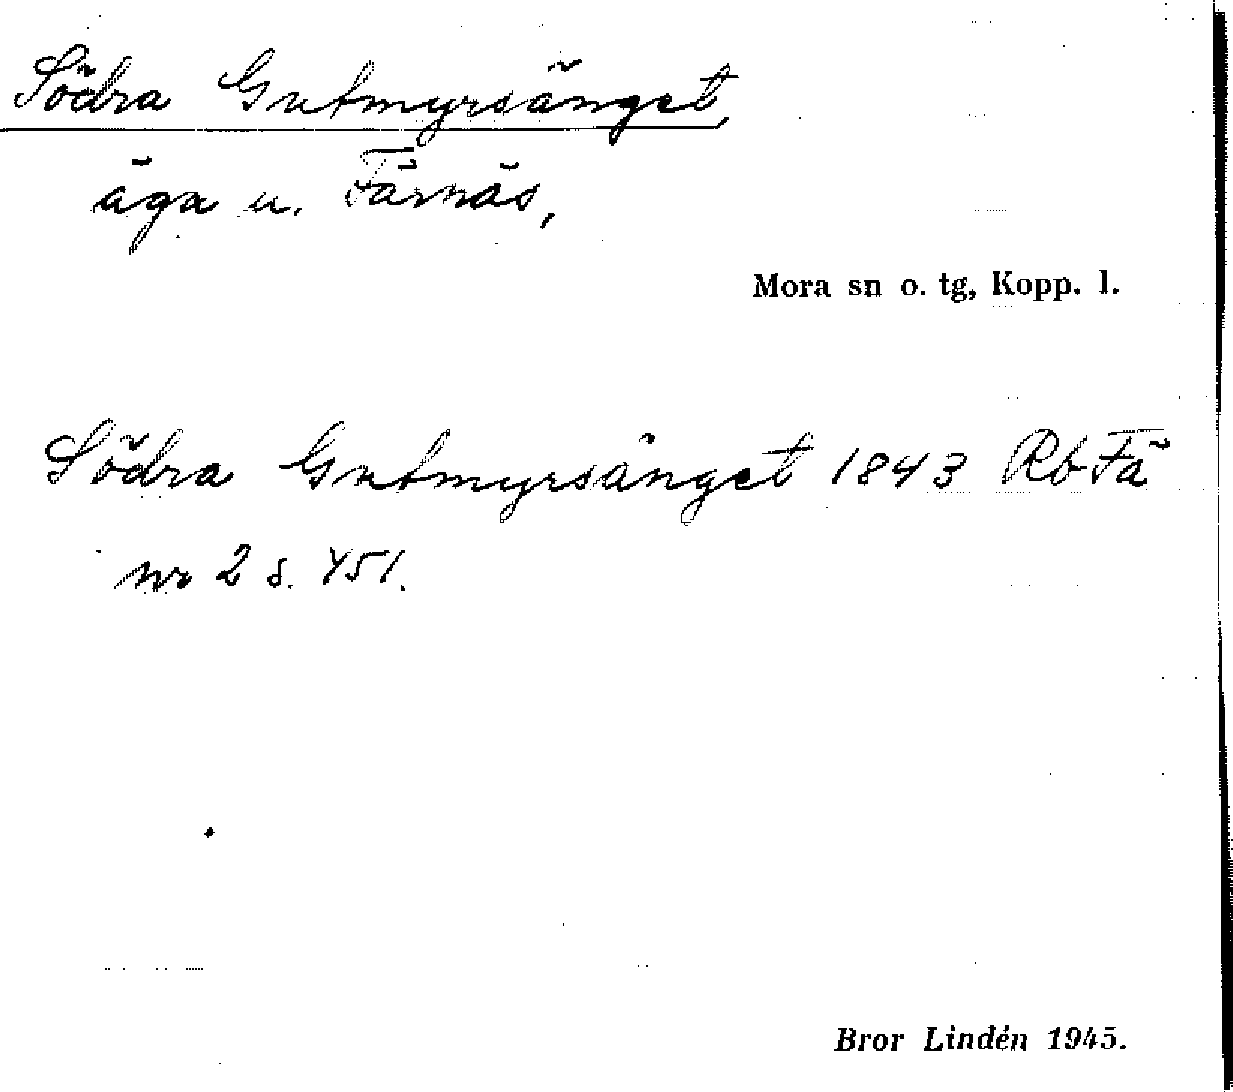 Södra Gutmyrsänget,
äga u. Färnäs,
Mora sn o. tg, Kopp. l.
Södra Gutmyrsänget 1843 Rb Fä
nr 2 s. 451.
Bror Lindén 1945.